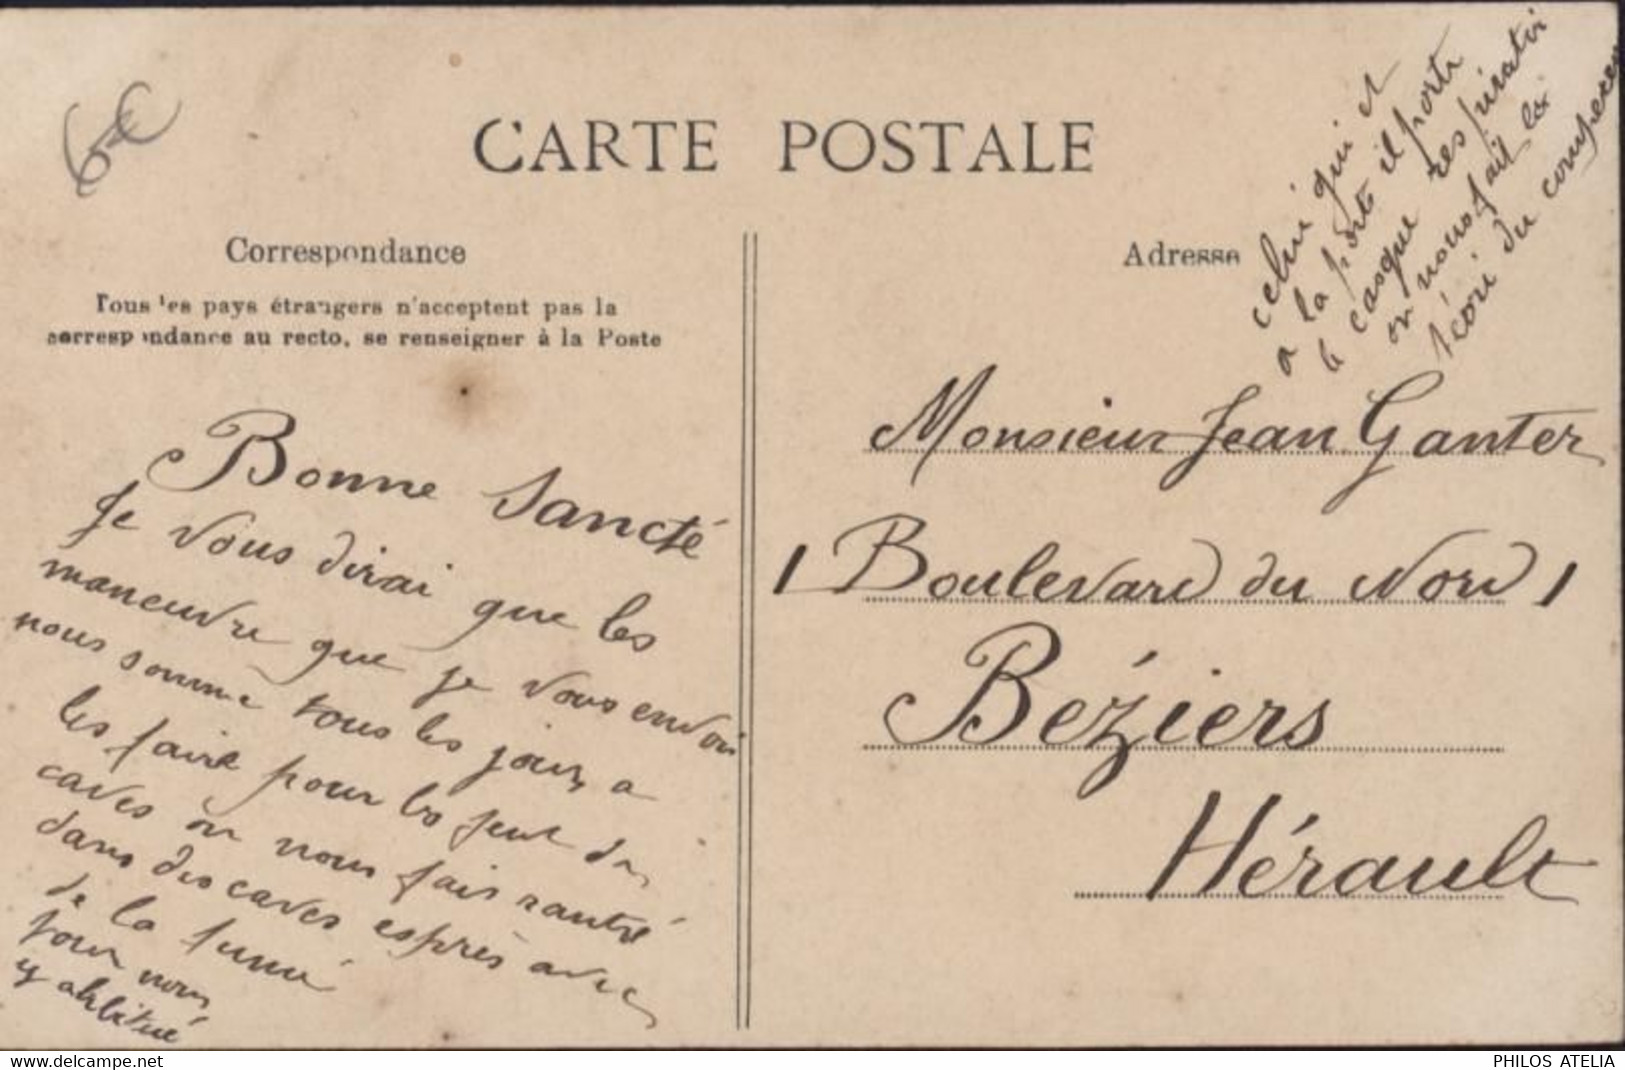 6€
CARTE POSTALE
Correspondance
Tous les pays étrangers n'acceptent pas la
correspondance au recto, se renseigner à la Poste
Bonne Sancté
Je vous dirai que les
maneuvre que je vous envoi
nous somme tous les jours a
les faire pour les feut de
caves ou nous fais rantré
dans des caves esprès avec
de la fumé
pour nous
y abitué
Adresse
celui qui et
a la porte il porte
le casque respiratir
on nous fait la
téori du
Monsieur Jean Ganter
1 Boulevard du Nord 1
Béziers
Hérault
www.delcampe.net
PHILOS ATELIA